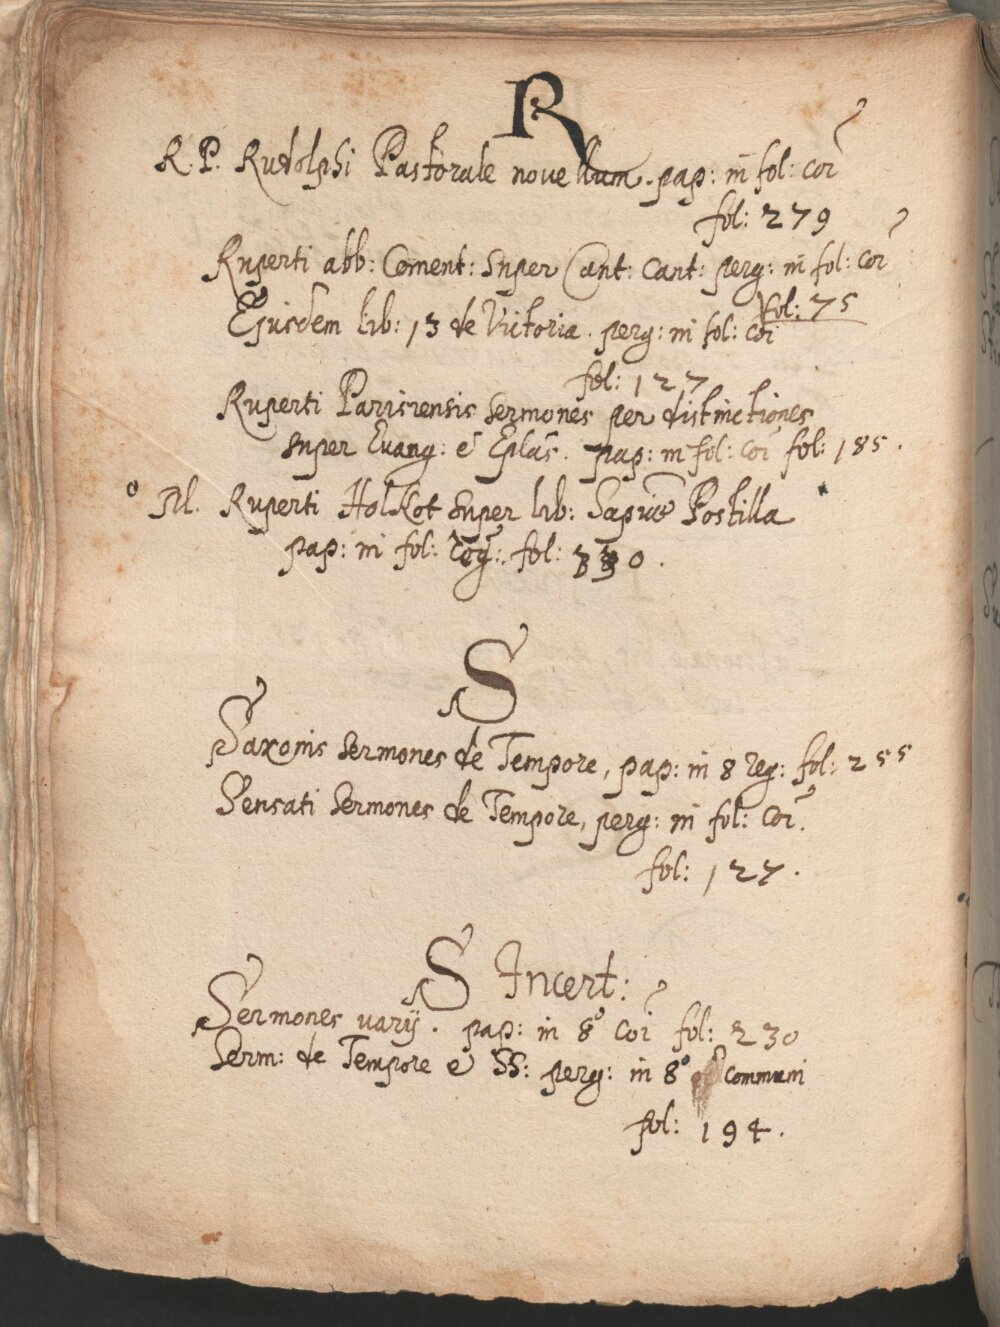 R
R. P. Rudolphi Pastorale novellum. pap: in fol: cor̄
fol: 279
Ruperti abb: Coment: super Cant: Cant: perg: in fol: cor̄
fol: 75
Ejusdem lib: 13 de Victoria. perg: in fol: cor̄
fol: 127
Ruperti Parisiensis sermones per distinctiones
super Evang: e Eplās. pap: in fol: cor̄ fol: 185.
M. Ruperti Holkot super lib: Sapiē Postilla
pap: in fol: reg: fol:
S
Saxonis sermones de Tempore, pap: in 8 reg: fol: 255
Sensati sermones de Tempore, perg: in fol: cor̄.
fol: 127.
S Incert:
Sermones varij. pap: in 8° cor̄ fol: 230
Serm: de Tempore e SS: perg: in 8° communi
fol: 194.